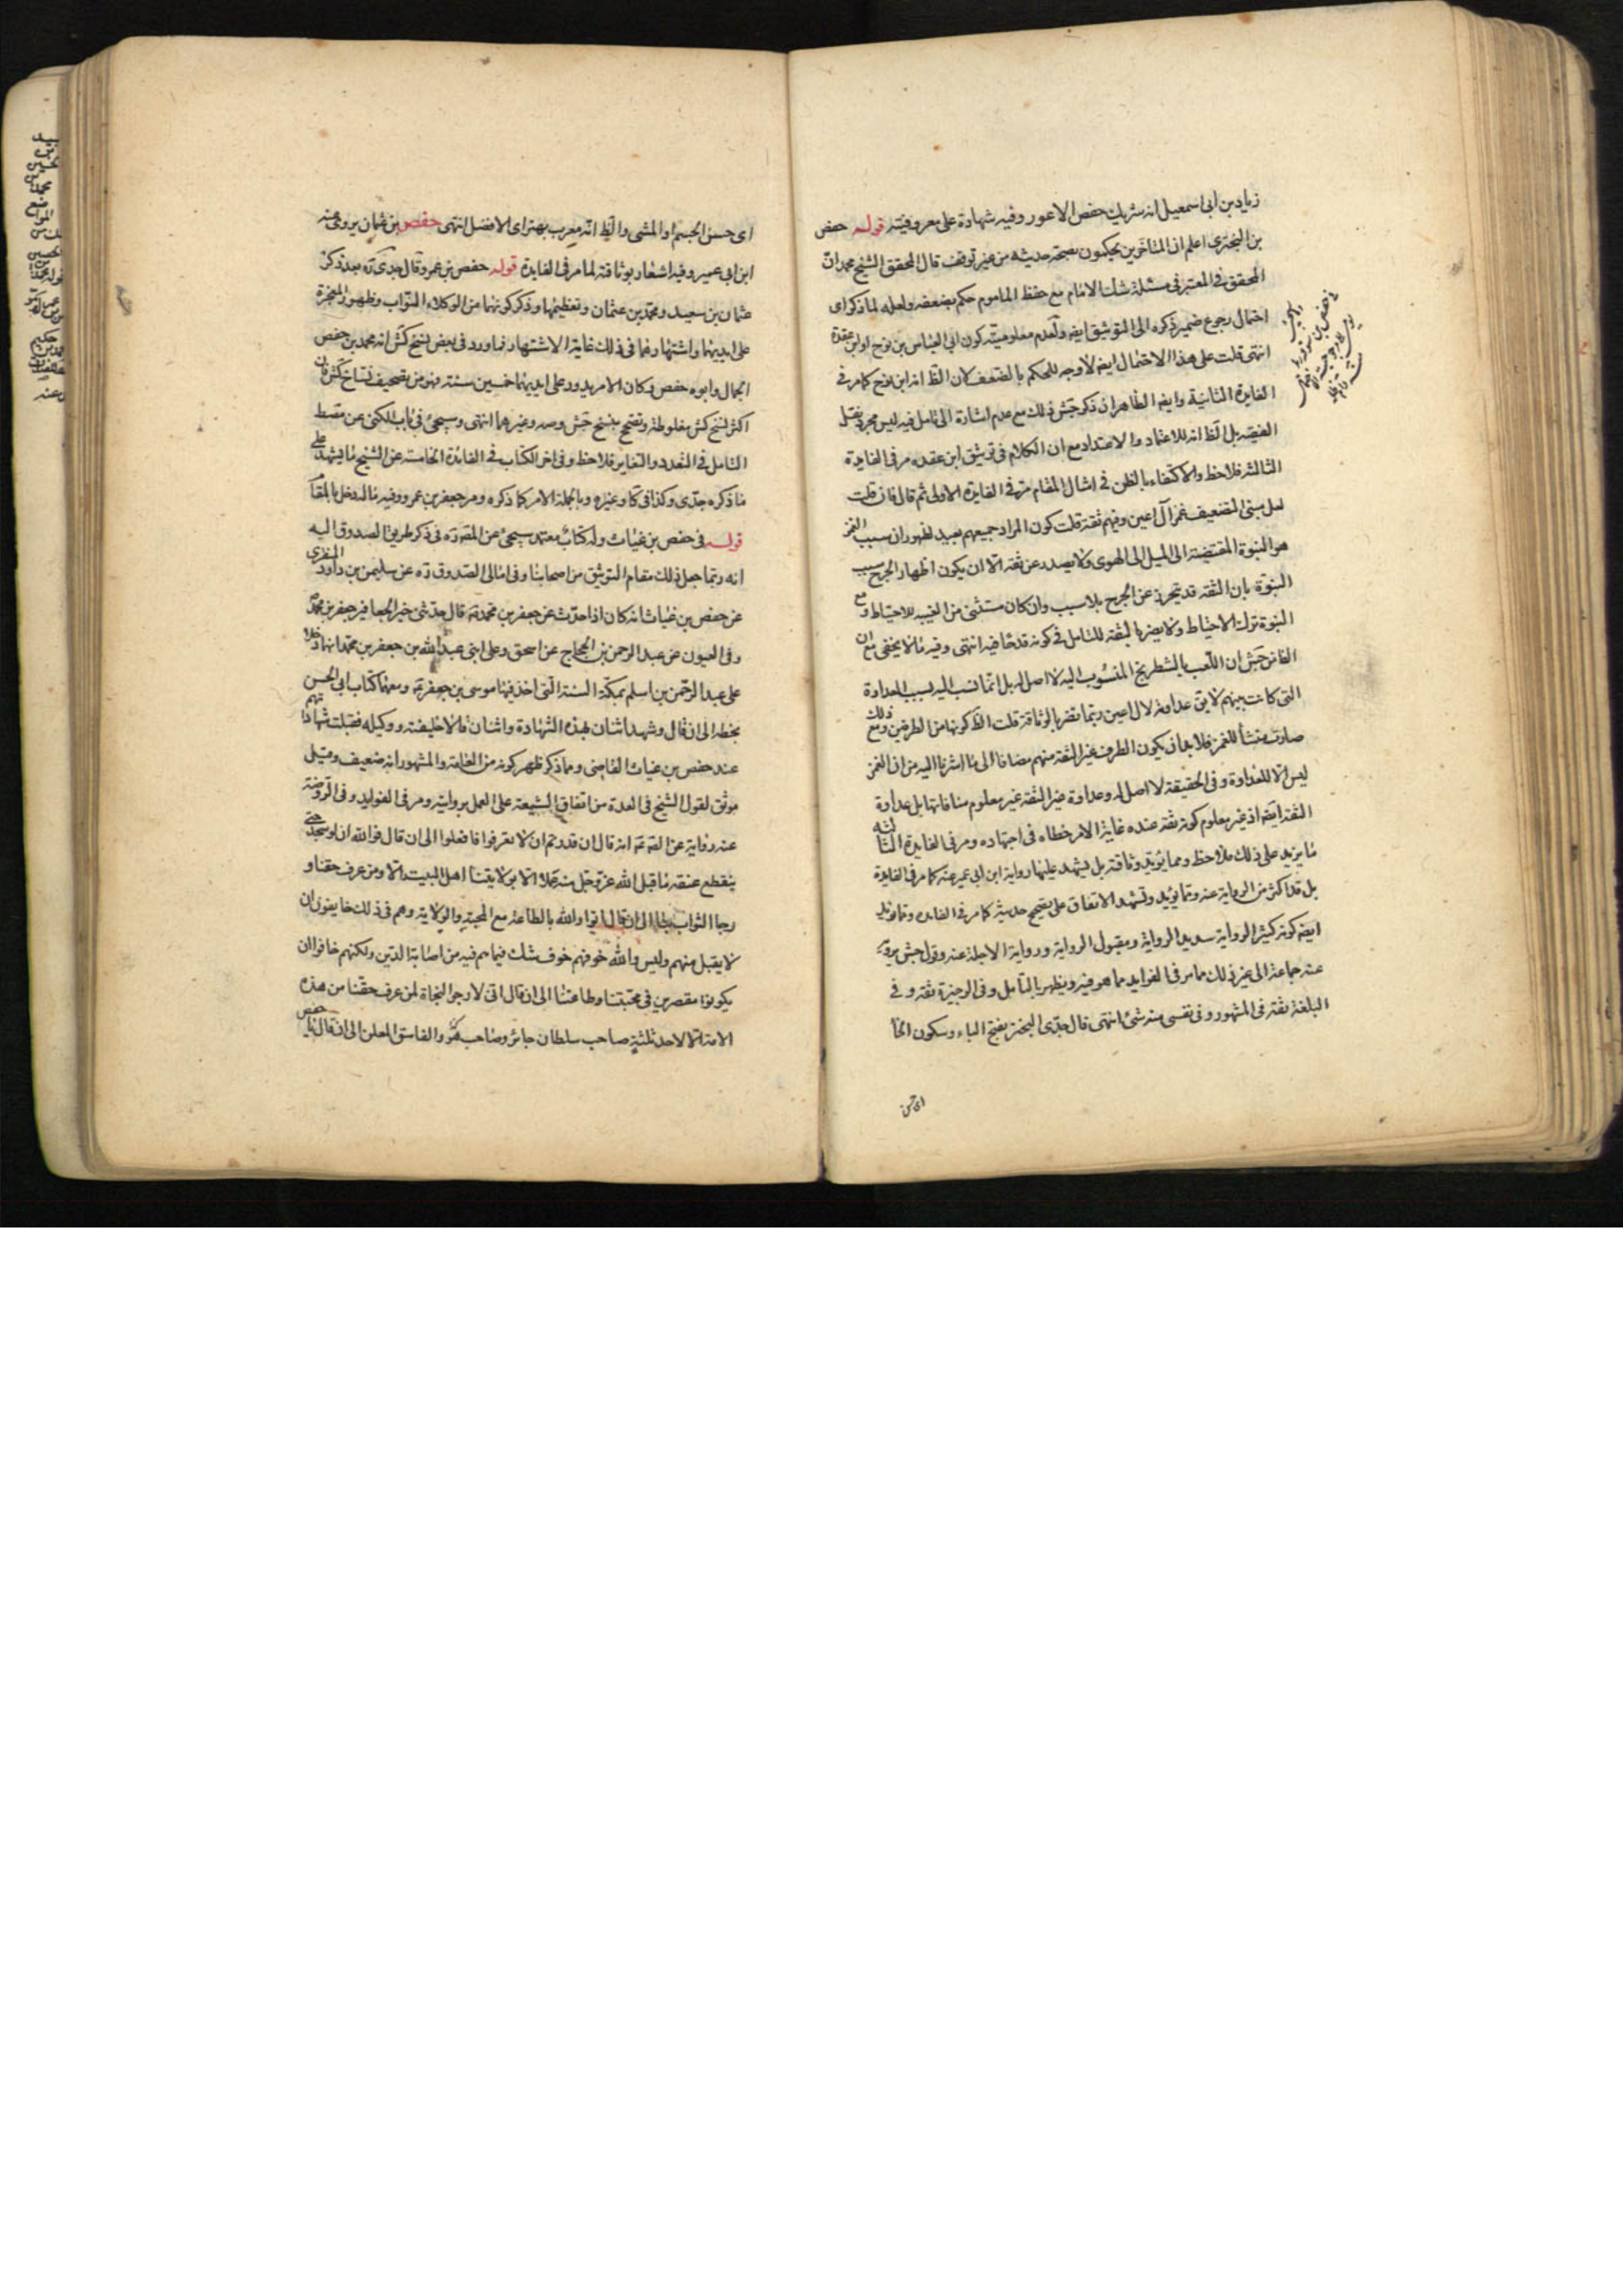 زياد بن ابى اسمعيل انه شريك حفص الاعور وفيه شهادة على معروفيته قوله حفص
بن البخترى اعلم ان المتاخرين يحكمون بصحة حديثه من غير توقف قال المحقق الشيخ محمد ان
المحقق فى المعتبر فى مسئلة شك الامام مع حفظ الماموم حكم بضعفه ولعله لما ذكر اى
احتمال رجوع ضمير ذكره الى التوثيق ايضا ولعدم معلومية كون ابى العباس بن نوح او ابن عقدة
انتهى قلت على هذا الاحتمال ايضا لا وجه للحكم بالضعف كان الظ انه ابن نوح كما مر فى
الفايدة الثانية وايضا الظاهر ان ذكر جش ذلك مع عدم اشارة الى تامل فيه ليس مجرد نقل
القصة بل الظ انه للاعتماد والاعتداد مع ان الكلام فى توثيق ابن عقده مر فى الفايدة
الثالثة فلاحظ والاكتفاء بالظن فى امثال المقام مر فى الفايدة الاولى ثم قال فان قلت
لعل مبنى التضعيف غمز آل اعين وفيهم ثقة قلت كون المراد جميعهم بعيد لظهور ان سبب الغمز
هو النبوة المقتضية الى الميل الى الهوى ولا يصدر عن ثقة الا ان يكون اظهار الجرح سبب
النبوة بان الثقة قد تحرز عن الجرح بلا سبب وان كان مستثنى من الغيبة للاحتياط ومع
النبوة ترك الاحتياط ولا يضر بالثقة للتامل فى كونه قدحا فيه انتهى وفيه ما لا يخفى مع ان
الغامز جش ان اللعب بالشطرنج المنسوب اليه لا اصل له بل انما نسب اليه بسبب العداوة
التى كانت بينهم لا يق عداوة لال اعين ربما تضر بالوثاقة قلت الظ كونها من الطرفين ومع ذلك
صارت منشأ للغمز فلا بد ان يكون الطرف غير الثقة منهم مضافا الى ما اشرنا اليه من ان الغمز
ليس الا للعداوة وفى الحقيقة لا اصل له وعداوة غير الثقة غير معلوم منافاتها بل عداوة
الثقة ايضا اذ غير معلوم كونه ثقة عنده غاية الامر خطاه فى اجتهاده ومر فى الفايدة الثالثة
ما يزيد على ذلك فلاحظ ومما يؤيد وثاقته بل يشهد عليها رواية ابن ابى عمير عنه كما مر فى الفايدة
بل قد اكثر من الرواية عنه ومما يؤيد ويشهد الاتفاق على تصحيح حديثه كما مر فى الفايده ومما يؤيد
ايضا كونه كثير الرواية سديد الرواية ومقبول الرواية ورواية الاجلة عنه وقول جش يرويه
عنه جماعة الى غير ذلك مما مر فى الفوايد مما هو فيه ويظهر بالتامل وفى الوجيزة ثقة وفى
البلغة ثقة فى المشهور وفى نفسى منه شئ انتهى قال جدى البختر بفتح الباء وسكون الخا
اى حسن
اى حسن الجسم او المشى والظ انه معرب بهتر اى الافضل انتهى حفص بن عثمان يروى عنه
ابن ابى عمير وفيه اشعار بوثاقته لما مر فى الفايدة قوله حفص بن عمرو قال جدى ره بعد ذكر
عثمان بن سعيد ومحمد بن عثمان وتعظيمها وذكر كونهما من الوكلاء النواب وظهور المعجزة
على ايديهما واشتهارهما فى ذلك غاية الاشتهار فما ورد فى بعض نسخ كش انه محمد بن حفص
الجمال وابوه حفص وكان الامر يدور على ايديهما خمسين سنة فهو من تصحيف نساخ كش فان
اكثر نسخ كش مغلوطة وتصح بنسخ جش وصه وغيرهما انتهى وسيجئ فى باب الكنى عن مصط
التامل فى التعدد والتغاير فلاحظ وفى اخر الكتاب فى الفائدة الخامسة عن الشيخ ما يشهد على
ما ذكره جدى وكذا فى كا وغيره وبالجملة الامر كما ذكره ومر جعفر بن عمرو وفيه ماله دخل بالمقام
قوله فى حفص بن غياث وله كتاب معتمد سيجئ عن المص ره فى ذكر طريق الصدوق اليه
انه ربما جعل ذلك مقام التوثيق من اصحابنا وفى امالى الصدوق ره عن سليمن بن داود المنقرى
عن حفص بن غياث انه كان اذا حدث عن جعفر بن محمد ع قال حدثنى خير الجعافر جعفر بن محمد
وفى العيون عن عبد الرحمن بن الحجاج عن اسحق وعلى ابنى عبد الله بن جعفر بن محمد انهما دخلا
على عبد الرحمن بن اسلم بمكة السنة التى اخذ فيها موسى بن جعفر ع ومعهما كتاب ابى الحسن
بخطه الى ان قال وشهد اثنان بهذه الشهادة واثنان قالا خليفته ووكيله فقبلت شهادتهم
عند حفص بن غياث القاضى ومما ذكر ظهر كونه من العامة والمشهور انه ضعيف وقيل
موثق لقول الشيخ فى العدة من اتفاق الشيعة على العمل بروايته ومر فى الفوايد وفى الروضة
عنه رواية عن الصه ع انه قال ان قدرتم ان لا تعرفوا فافعلوا الى ان قال فوالله ان لو سجد حتى
ينقطع عنقه ما قبل الله عز وجل منه عملا الا بولايتنا اهل البيت الا ومن عرف حقنا و
رجا الثواب بنا الى ان قال اتوا والله بالطاعة مع المحبة والولاية وهم فى ذلك خايفون ان
لا يقبل منهم وليس والله خوفهم خوف شك فيما هم فيه من اصابة الدين ولكنهم خافوا ان
يكونوا مقصرين فى محبتنا وطاعتنا الى ان قال انى لارجوا النجاة لمن عرف حقنا من هذه
الامة الا لاحد ثلثة صاحب سلطان جائر وصاحب هوى والفاسق المعلن الى ان قال يا حفص